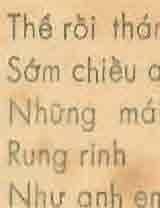 Thế rồi thán
Sớm chiều
Những má
Rung rinh
Như anh em